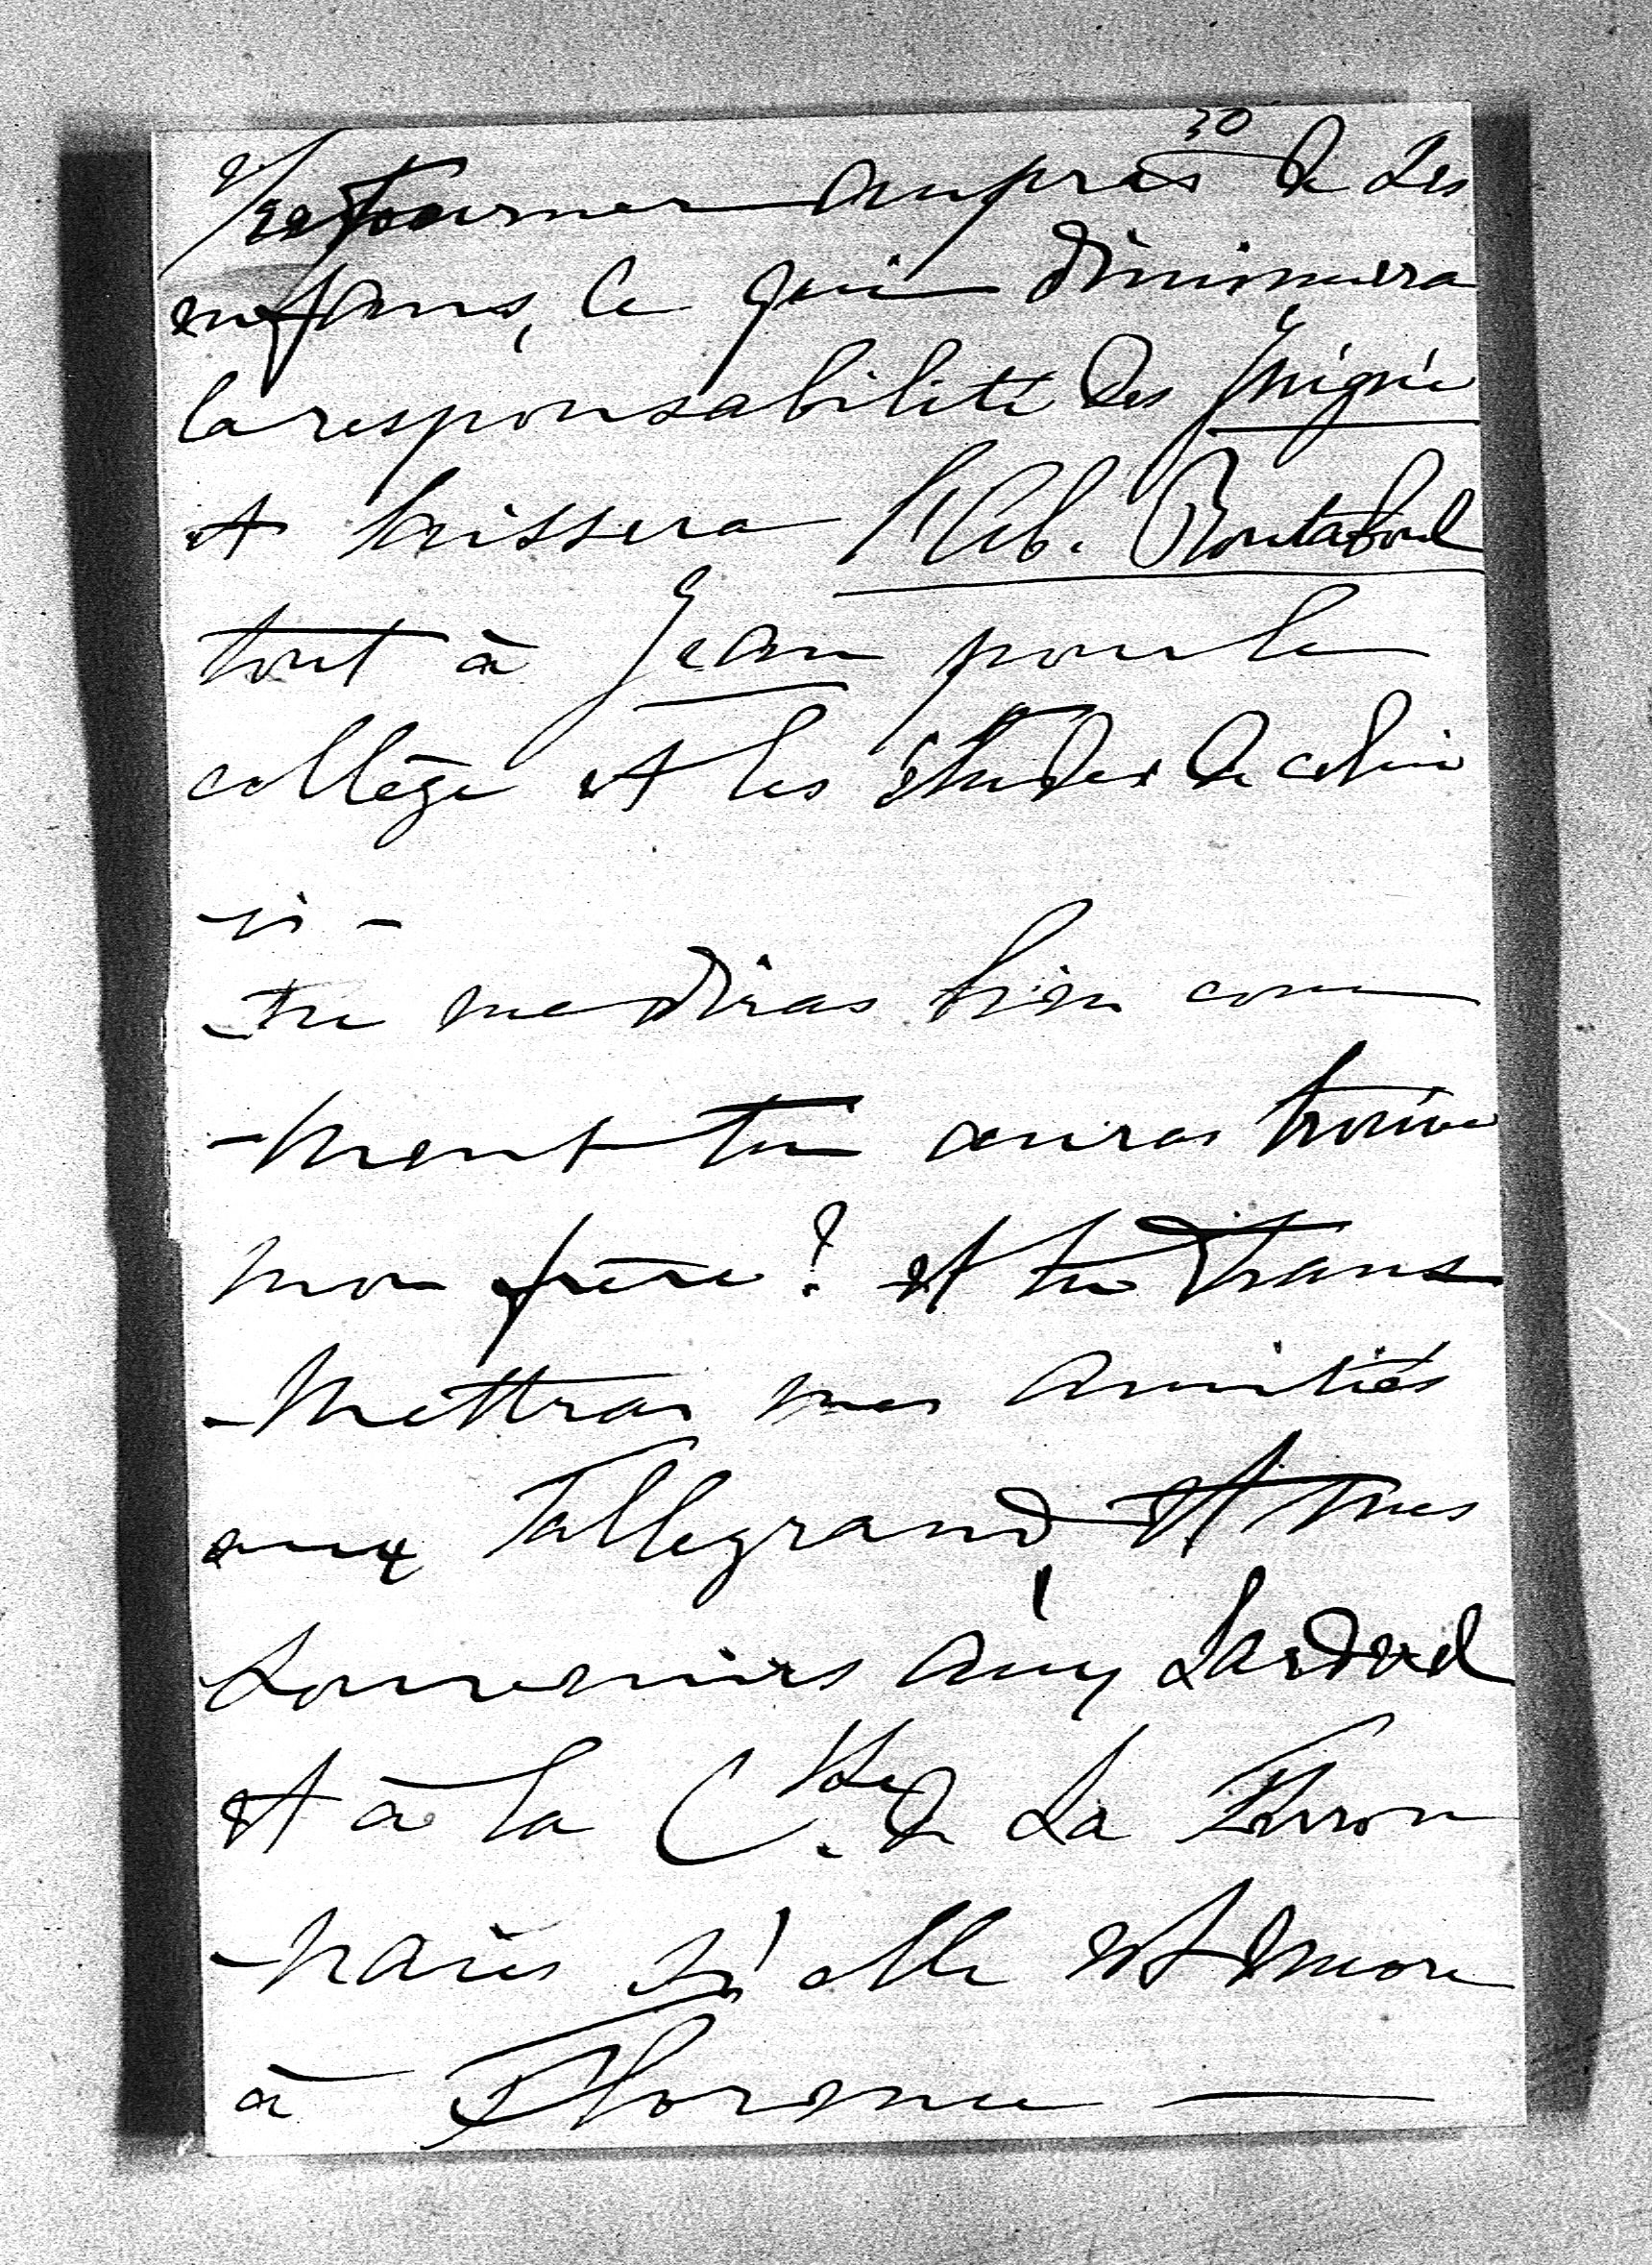 30
retourner auprès de ses
enfans, ce qui diminuera
la responsabilité des
et laissera l'Ab. Boutaboul
tout à Jean pour le
collège et les études de celui
-ci -
tu me diras bien com
-ment tu auras trouvé
mon frère? et tu trans
-mettras mes amitiés
aux Tallegrand, et mes
souvenirs aux Larderel
et à la Ctsse de La Ferron
-nais si elle est encore
à Florence —